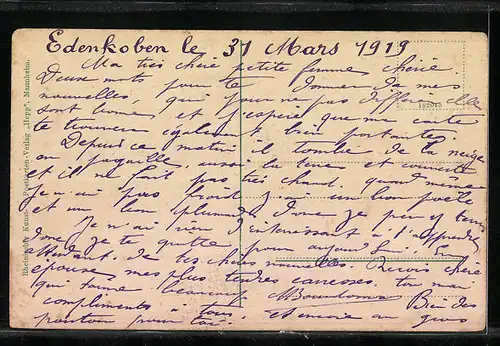 Edenkoben le 31 Mars 1919
Ma très chère petite femme chérie.
Deux mots pour te donner de mes
nouvelles qui pour ne pas
sont bonne et j'espère que ma carte
te trouvera également bien portante.
Depuis ce matin il tombe de la neige
aussi la terre est couverte
et il ne fait pas très chaud. quand même
je n'ai pas froid un bon poële
et un bon donc je peu y tenir
Je n'ai rien d'interessant à t'apprendre
donc je te quitte pour aujourd'hui. En
attendant de tes chères nouvelles. Reçois chère
épouse mes plus tendres caresses. ton mari
qui t'aime beaucoup Bien des
compliments à tous et encore un gros
poutou pour toi.
Rheinische Kunst- Postkarten-Verlag „Hepp“, Mannheim.